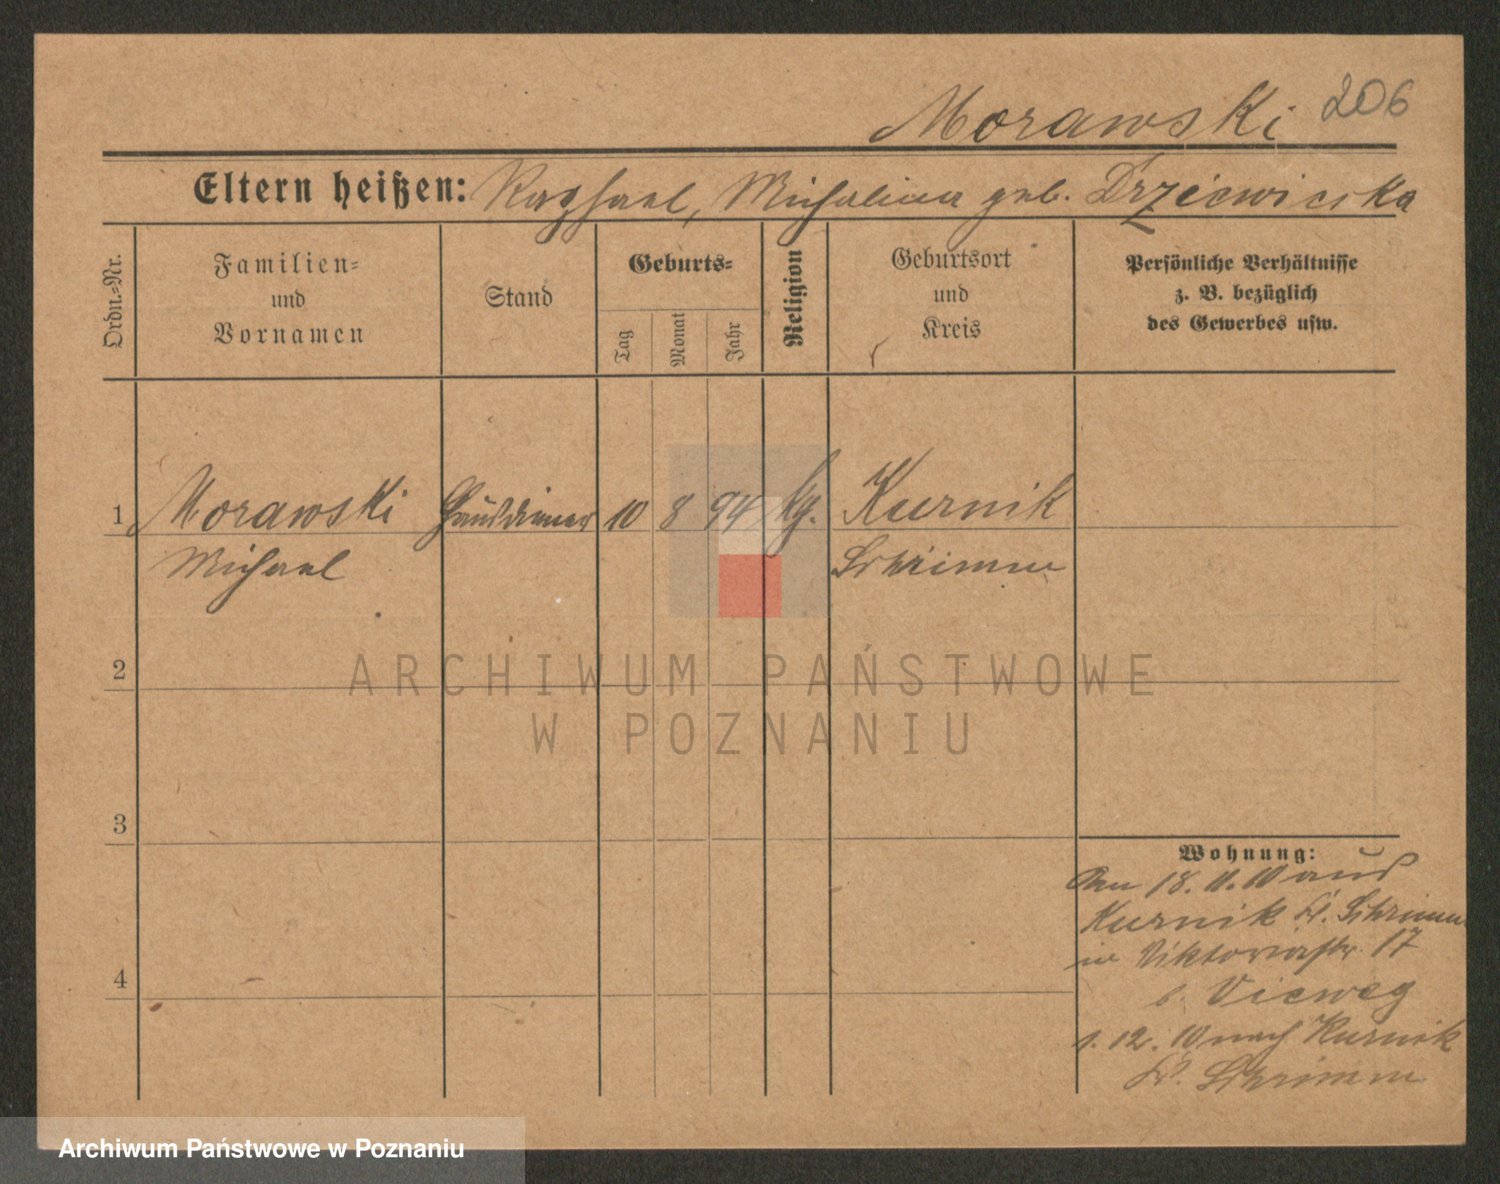 Morawski 206
Eltern heißen: Raphael, Michalina geb. Drzewiecka
Ordn.-Nr.
Familien- und Vornamen
Stand
Geburts-
Tag
Monat
Jahr
Religion
Geburtsort und Kreis
Persönliche Verhältnisse
z. B. bezüglich
des Gewerbes usw.
1 Morawski Hausdiener 10 8 94 kg. Kurnik
Michael Schrimm
2
3
4
Wohnung:
Am 18. 11. 10 aus
Kurnik Kr. Schrimm
in Viktoriastr. 17
b. Vieweg
1. 12. 10 nach Kurnik
Kr. Schrimm
ARCHIWUM PAŃSTWOWE
W POZNANIU
Archiwum Państwowe w Poznaniu